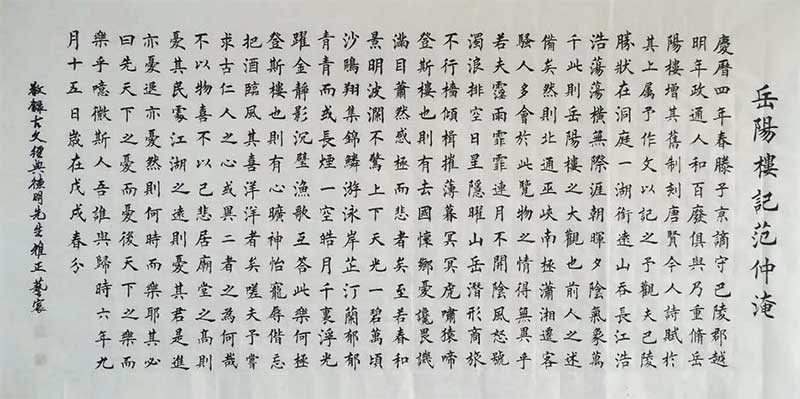 岳陽樓記范仲淹
慶曆四年春滕子京謫守巴陵郡越
明年政通人和百廢俱興乃重脩岳
陽樓增其舊制刻唐賢今人詩賦於
其上属予作文以記之予觀夫巴陵
勝狀在洞庭一湖銜遠山吞長江浩
浩蕩蕩橫無際涯朝暉夕陰氣象萬
千此則岳陽樓之大觀也前人之述
備矣然則北通巫峽南極瀟湘遷客
騷人多會於此覽物之情得無異乎
若夫霪雨霏霏連月不開陰風怒號
濁浪排空日星隱曜山岳潛形商旅
不行檣傾楫摧薄暮冥冥虎嘯猿啼
登斯樓也則有去國懷鄉憂讒畏譏
滿目蕭然感極而悲者矣至若春和
景明波瀾不驚上下天光一碧萬頃
沙鷗翔集錦鱗游泳岸芷汀蘭郁郁
青青而或長煙一空皓月千裏浮光
躍金靜影沉璧漁歌互答此樂何極
登斯樓也則有心曠神怡寵辱偕忘
把酒臨風其喜洋洋者矣嗟夫予嘗
求古仁人之心或異二者之為何哉
不以物喜不以己悲居廟堂之高則
憂其民處江湖之遠則憂其君是進
亦憂退亦憂然則何時而樂耶其必
曰先天下之憂而憂後天下之樂而
樂乎噫微斯人吾誰與歸時六年九
月十五日歲在戊戌春分
敬錄古文經典德明先生雅正藝